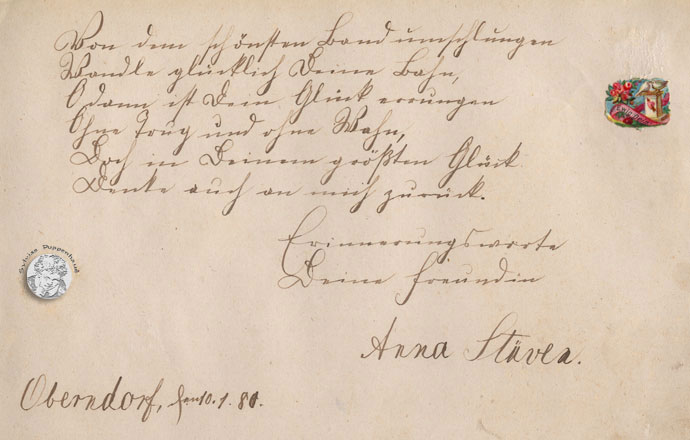 Von dem schönsten Band umschlungen
Wandle glücklich Deine Bahn,
O dann ist Dein Glück errungen
Ohne Trug und ohne Wahn,
Doch in Deinem größten Glück
Denke auch an mich zurück.
Erinnerungsworte
Deine Freundin
Anna Stüven.
Oberndorf, den 10.1.80.
Sabines Puppenhaus